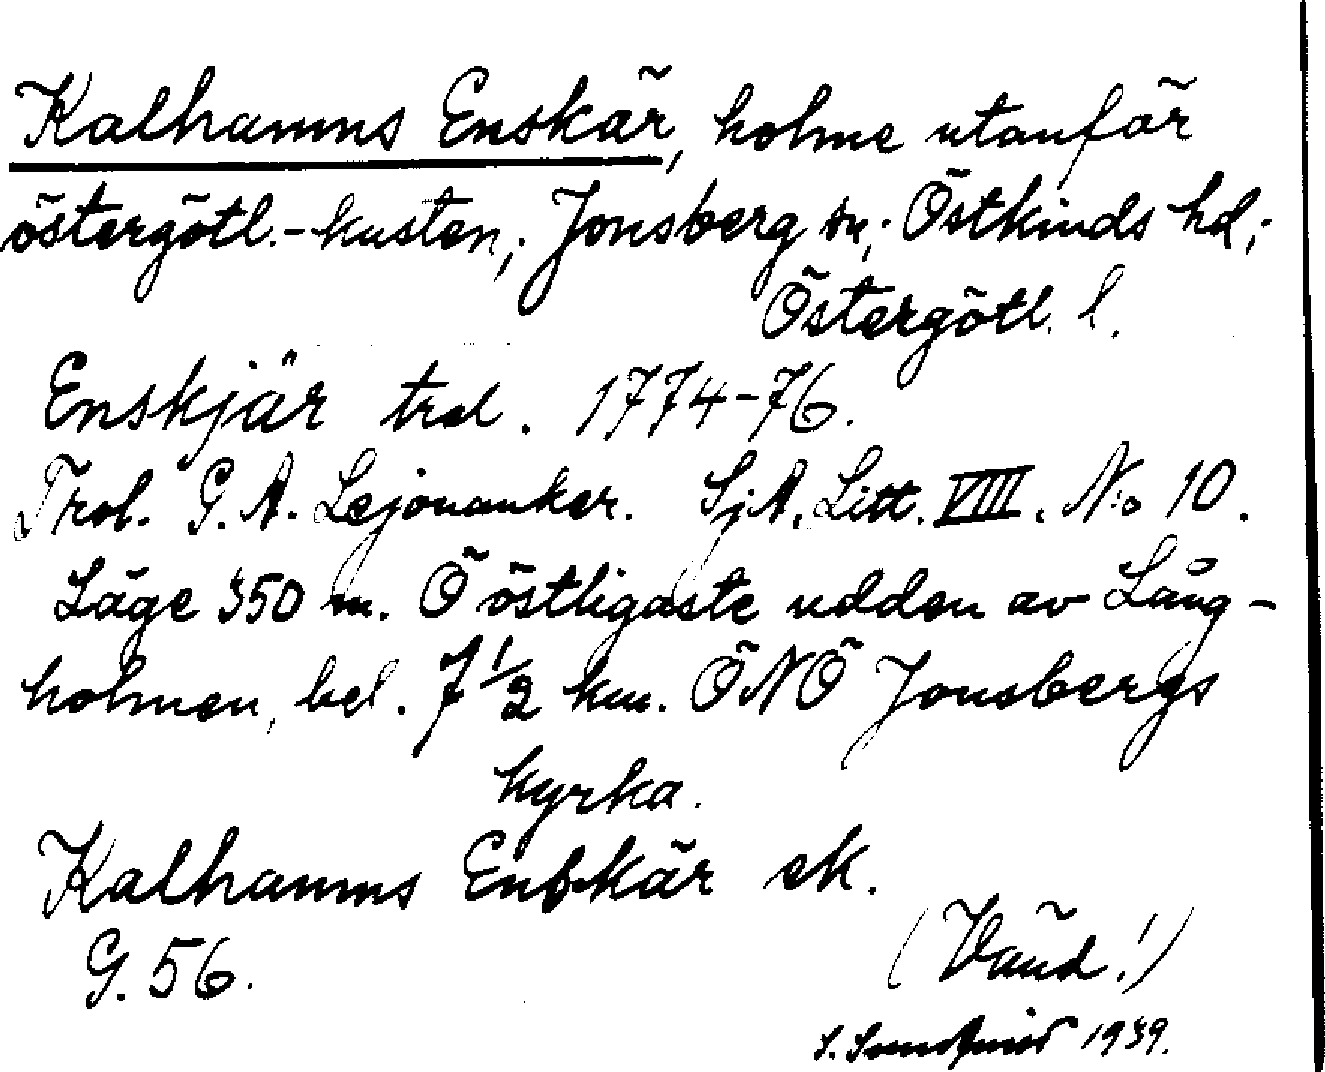 Kalhamns Enskär, holme utanför
östergötl.-kusten; Jonsberg sn; Östkinds hd;
Östergötl. l.
Enskjär trol. 1774-76.
Trol. G. A. Lejonanker. SjA. Litt. VIII. N:o 10.
Läge 350 m. Ö östligaste udden av Lång-
holmen, bel. 7 1/2 km. ÖNÖ Jonsbergs
kyrka.
Kalhamns Enskär ek.
G. 56.
(Vänd!)
1939.